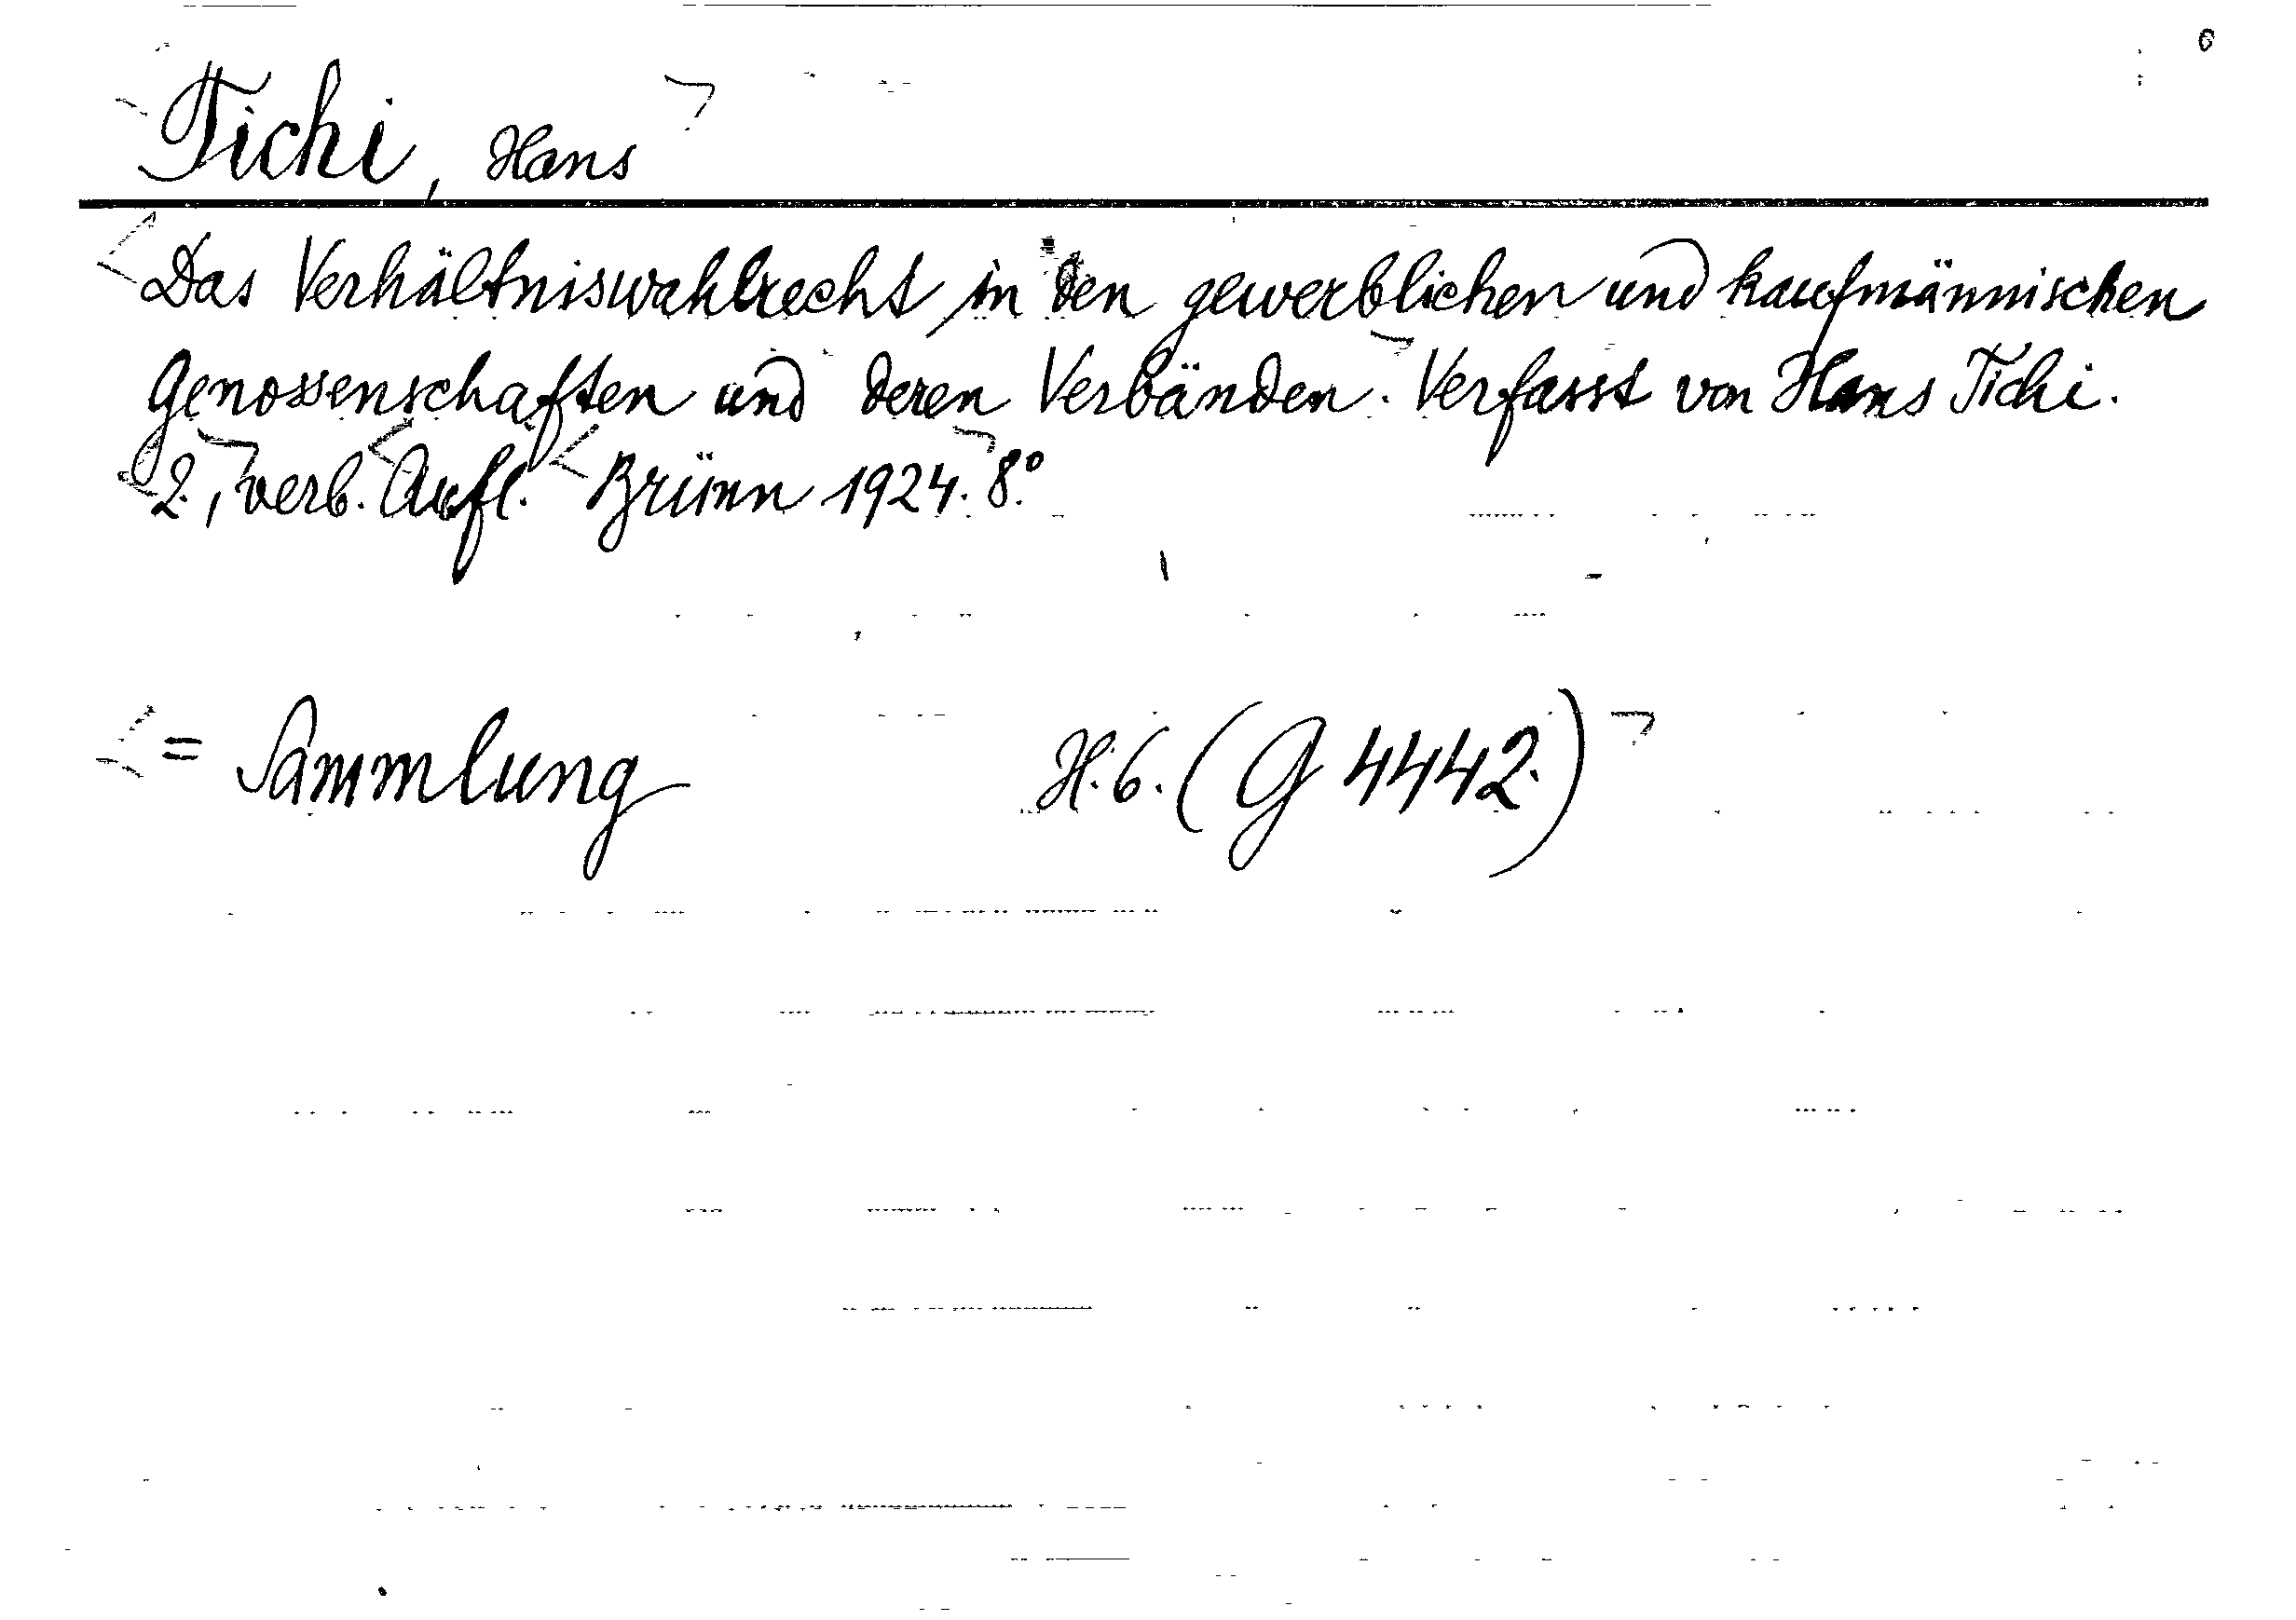 6
Tichi, Hans
Das Verhältniswahlrecht in den gewerblichen und kaufmännischen
Genossenschaften und deren Verbänden. Verfasst von Hans Tichi.
2., verb. Aufl. Brünn 1924. 8°.
= Sammlung H. 6. (G 4442.)